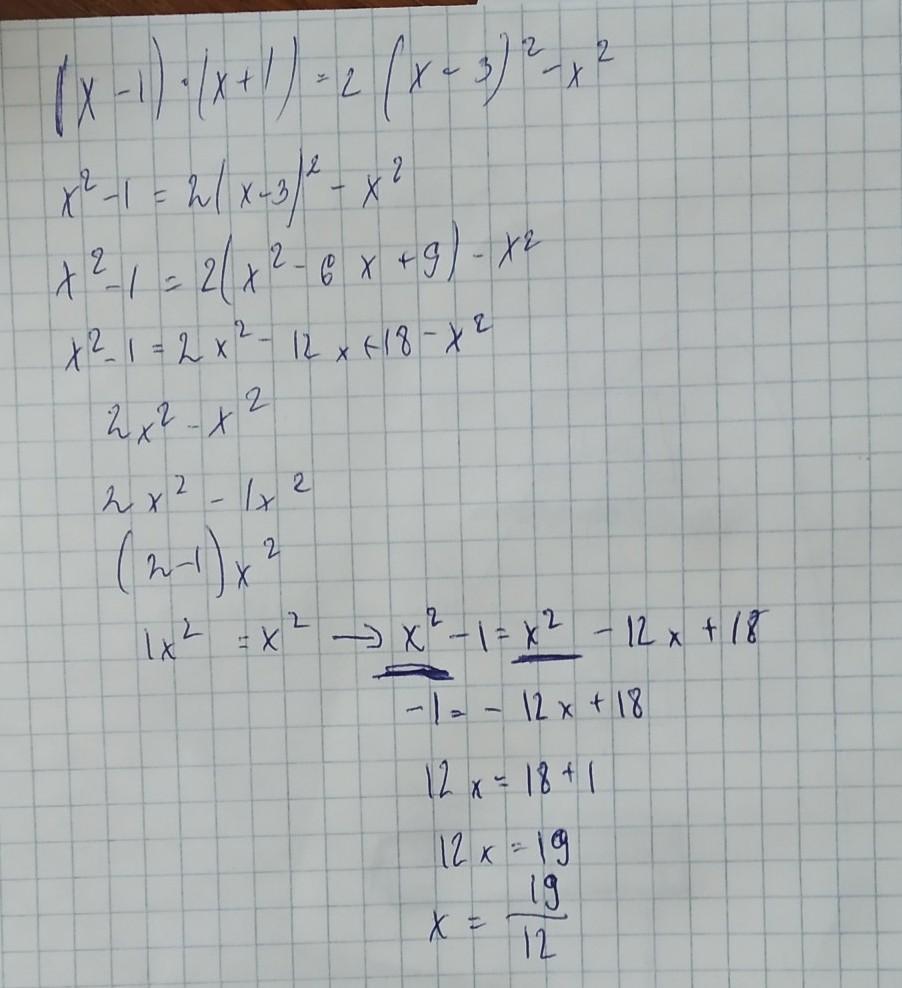 (x-1)·(x+1)=2(x-3)²-x²
x²-1=2(x-3)²-x²
x²-1=2(x²-6x+9)-x²
x²-1=2x²-12x+18-x²
2x²-x²
2x²-1x²
(2-1)x²
1x²=x² → x²-1=x²-12x+18
-1=-12x+18
12x=18+1
12x=19
x=19/12